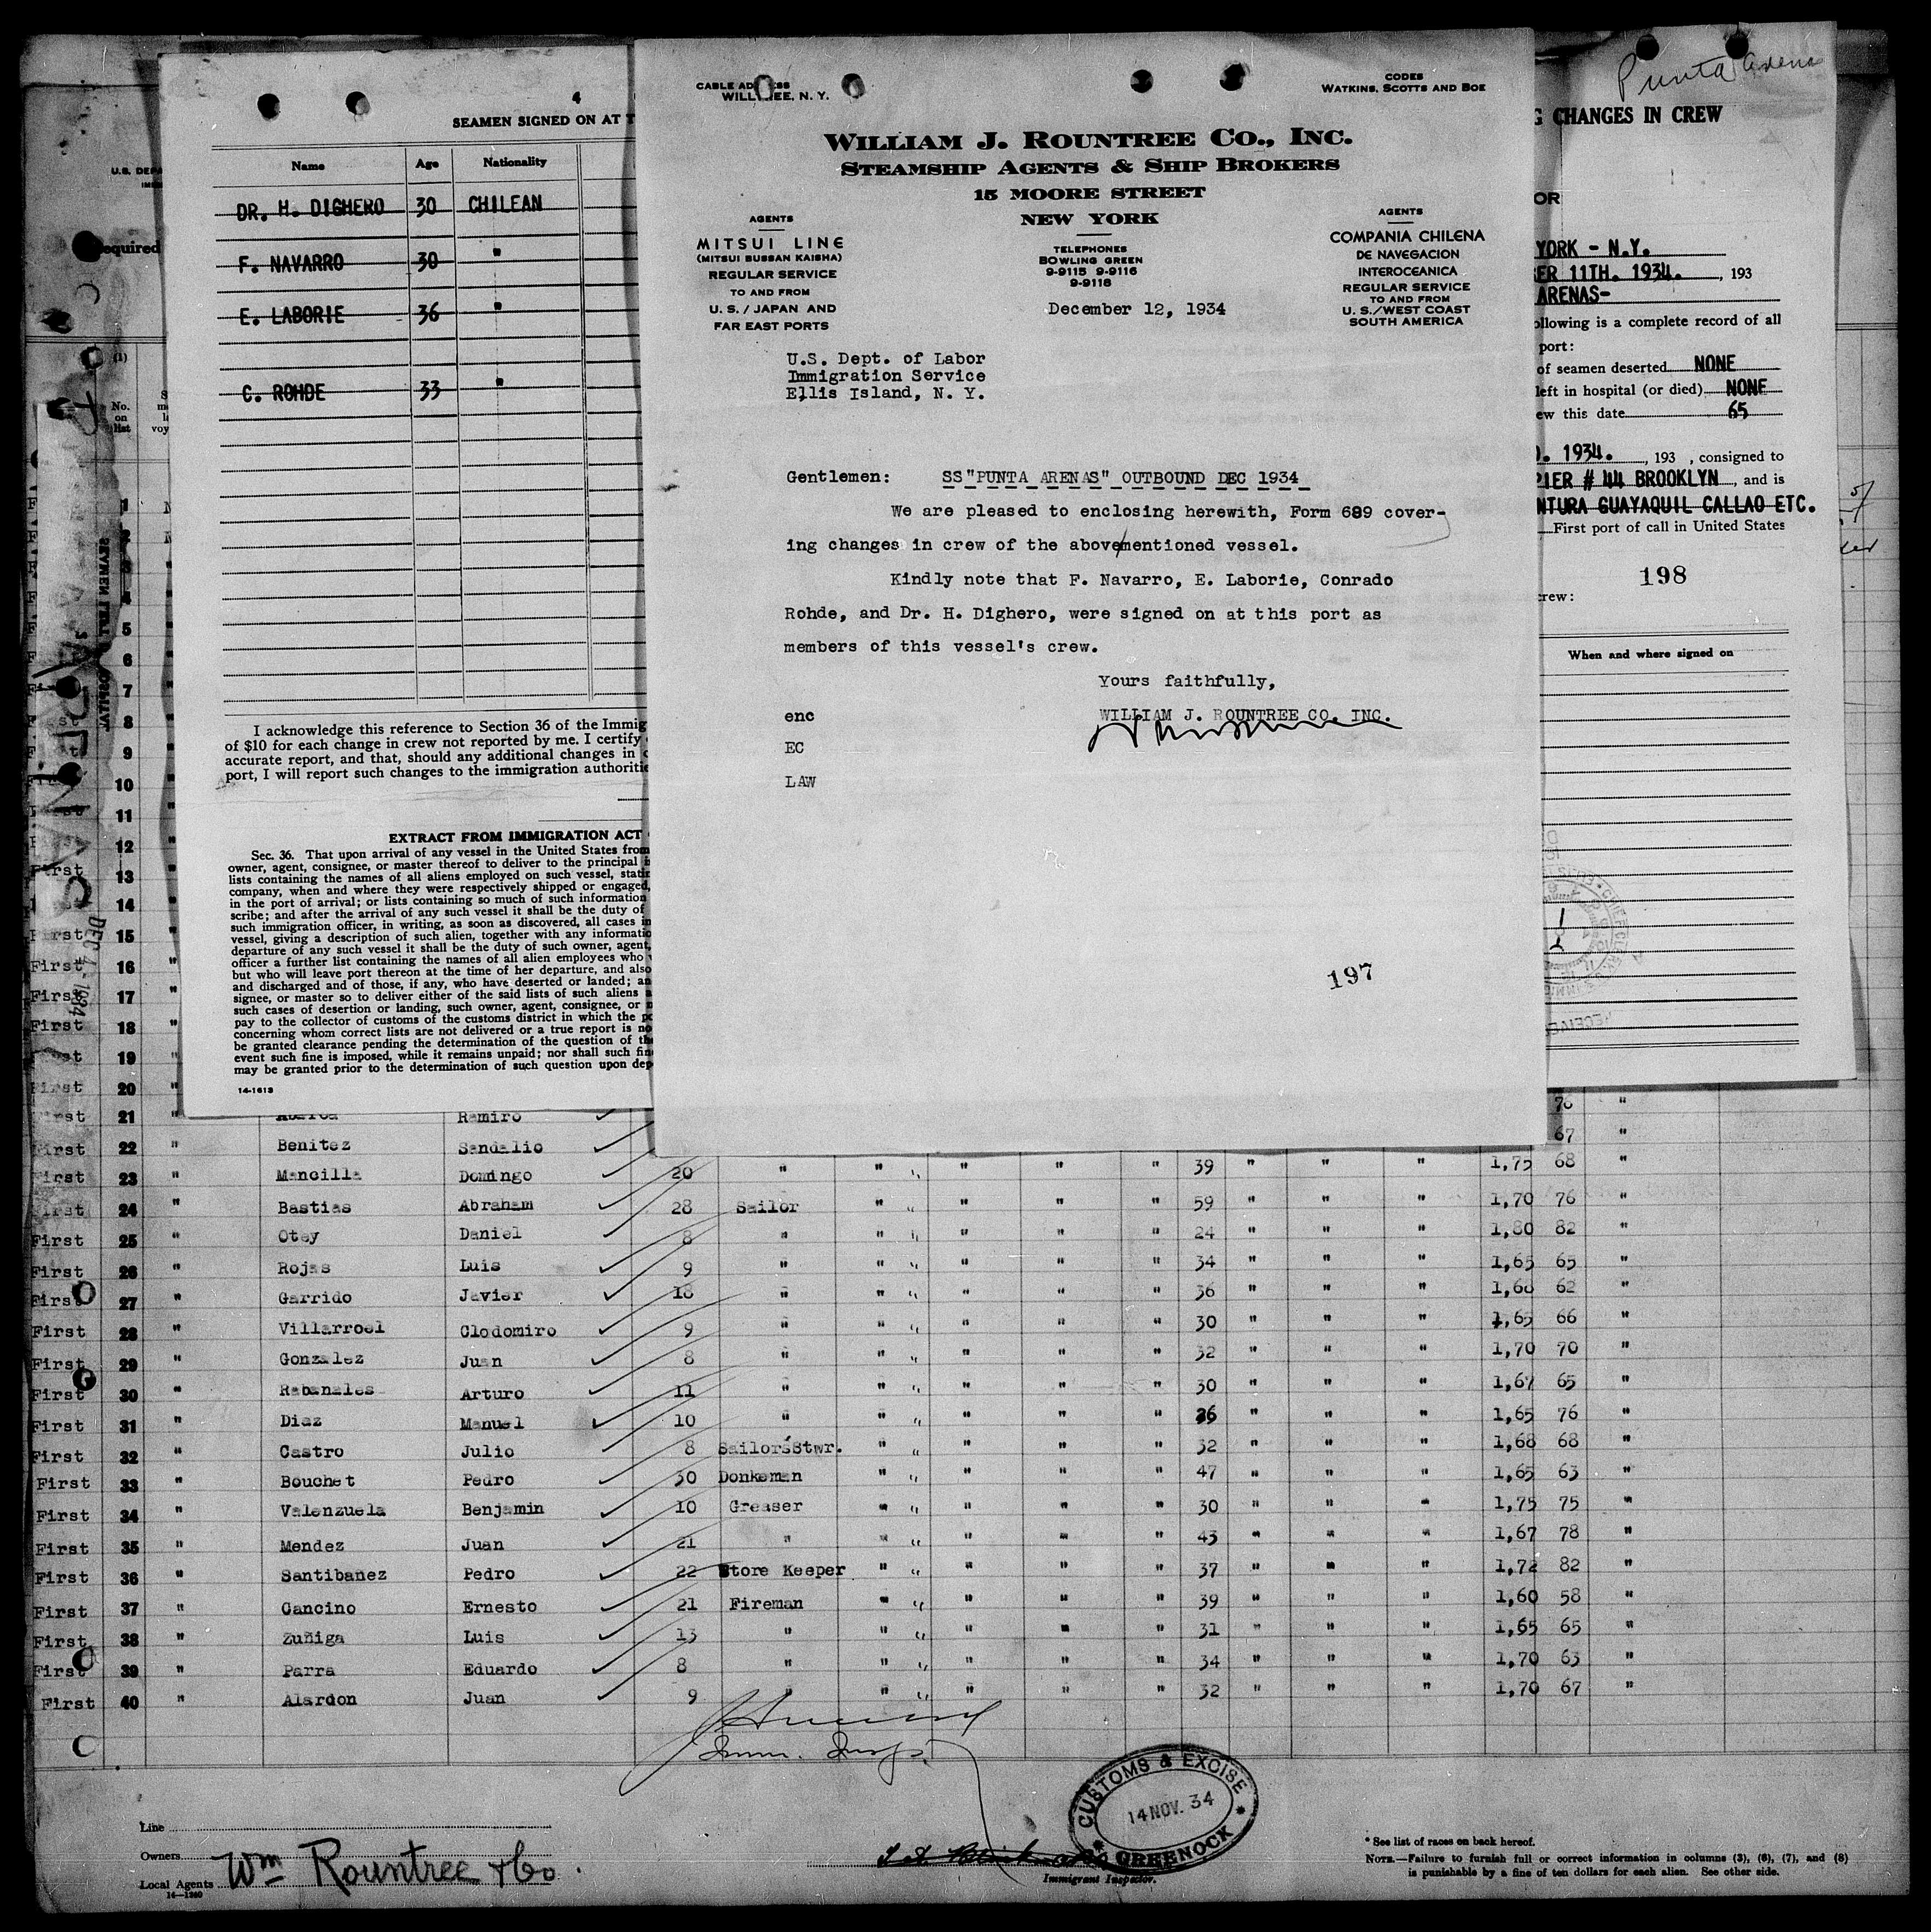 4
SEAMEN SIGNED ON AT T
Name Age Nationality
DR. H. DIGHERO 30 CHILEAN
F. NAVARRO 30 "
E. LABORIE 36 "
C. ROHDE 33 "
I acknowledge this reference to Section 36 of the Immig
of $10 for each change in crew not reported by me. I certify
accurate report, and that, should any additional changes in
port, I will report such changes to the immigration authoritie
EXTRACT FROM IMMIGRATION ACT
Sec. 36. That upon arrival of any vessel in the United States from
owner, agent, consignee, or master thereof to deliver to the principal
lists containing the names of all aliens employed on such vessel, stati
company, when and where they were respectively shipped or engaged,
in the port of arrival; or lists containing so much of such information
scribe; and after the arrival of any such vessel it shall be the duty of
such immigration officer, in writing, as soon as discovered, all cases in
vessel, giving a description of such alien, together with any informatio
departure of any such vessel it shall be the duty of such owner, agent,
officer a further list containing the names of all alien employees who
but who will leave port thereon at the time of her departure, and also
and discharged and of those, if any, who have deserted or landed; an
signee, or master so to deliver either of the said lists of such aliens
such cases of desertion or landing, such owner, agent, consignee, or
pay to the collector of customs of the customs district in which the po
concerning whom correct lists are not delivered or a true report is no
be granted clearance pending the determination of the question of th
event such fine is imposed, while it remains unpaid; nor shall such fin
may be granted prior to the determination of such question upon dep
14-1613
CABLE ADDRESS
WILLTREE, N. Y.
CODES
WATKINS, SCOTTS AND BOE
WILLIAM J. ROUNTREE CO., INC.
STEAMSHIP AGENTS & SHIP BROKERS
15 MOORE STREET
NEW YORK
AGENTS
MITSUI LINE
(MITSUI BUSSAN KAISHA)
REGULAR SERVICE
TO AND FROM
U. S. / JAPAN AND
FAR EAST PORTS
TELEPHONES
BOWLING GREEN
9-9115 9-9116
9-9118
AGENTS
COMPANIA CHILENA
DE NAVEGACION
INTEROCEANICA
REGULAR SERVICE
TO AND FROM
U. S./WEST COAST
SOUTH AMERICA
December 12, 1934
U.S. Dept. of Labor
Immigration Service
Ellis Island, N. Y.
Gentlemen: SS"PUNTA ARENAS" OUTBOUND DEC 1934
We are pleased to enclosing herewith, Form 689 cover-
ing changes in crew of the above/mentioned vessel.
Kindly note that F. Navarro, E. Laborie, Conrado
Rohde, and Dr. H. Dighero, were signed on at this port as
members of this vessel's crew.
Yours faithfully,
enc WILLIAM J. ROUNTREE CO. INC.
EC
LAW
197
Punta Arenas
G CHANGES IN CREW
OR
YORK - N.Y.
ER 11TH. 1934. , 193
ARENAS-
ollowing is a complete record of all
port:
of seamen deserted NONE
left in hospital (or died) NONE
ew this date 65
. 1934. , 193 , consigned to
PIER # 44 BROOKLYN , and is
NTURA GUAYAQUIL CALLAO ETC.
First port of call in United States
198
crew:
When and where signed on
U.S. DEPA
equired
(1)
No.
on
list
SEAMEN LEFT HOSPITAL
DEC 4 - 1934
1
2
3
4
5
6
7
8
9
10
11
12
13
14
15
First 16 "
First 17 "
First 18 "
19 "
First 20 "
First 21 " Ramiro 76 "
First 22 " Benitez Sandalio 67 "
First 23 " Mancilla Domingo 20 " " " " " " 39 " " " 1,75 68 "
First 24 " Bastias Abraham 28 Sailor " " " " " 59 " " " 1,70 76 "
First 25 " Otey Daniel 8 " " " " " " 24 " " " 1,80 82 "
First 26 " Rojas Luis 9 " " " " " " 34 " " " 1,65 65 "
First 27 " Garrido Javier 18 " " " " " " 36 " " " 1,68 62 "
First 28 " Villarroel Clodomiro 9 " " " " " " 30 " " " 1,65 66 "
First 29 " Gonzalez Juan 8 " " " " " " 32 " " " 1,70 70 "
First 30 " Rabanales Arturo 11 " " " " " " 30 " " " 1,67 65 "
First 31 " Diaz Manuel 10 " " " " " " 26 " " " 1,65 76 "
First 32 " Castro Julio 8 Sailor's Stwr. " " " " " 32 " " " 1,68 68 "
First 33 " Bouchet Pedro 30 Donkeman " " " " " 47 " " " 1,65 63 "
First 34 " Valenzuela Benjamin 10 Greaser " " " " " 30 " " " 1,75 75 "
First 35 " Mendez Juan 21 " " " " " " 43 " " " 1,67 78 "
First 36 " Santibanez Pedro 22 Store Keeper " " " " " 37 " " " 1,72 82 "
First 37 " Cancino Ernesto 21 Fireman " " " " " 39 " " " 1,60 58 "
First 38 " Zuñiga Luis 13 " " " " " " 31 " " " 1,65 65 "
First 39 " Parra Eduardo 8 " " " " " " 34 " " " 1,70 63 "
First 40 " Alardon Juan 9 " " " " " " 32 " " " 1,70 67 "
Imm. Insp.
CUSTOMS & EXCISE
14 NOV. 34
GREENOCK
Line
Owners
Local Agents Wm Rountree & Co.
14-1240
Immigrant Inspector.
* See list of races on back hereof.
NOTE.—Failure to furnish full or correct information in columns (3), (6), (7), and (8)
is punishable by a fine of ten dollars for each alien. See other side.